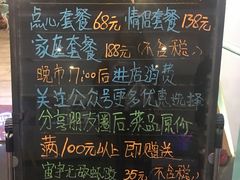 点心套餐68元 情侣套餐138元
家庭套餐188元(不含税)
晚市17:00后 进店消费
关注公众号更多优惠选择
分享朋友圈后菜品原价
满100元以上 即赠送
35元 不含税